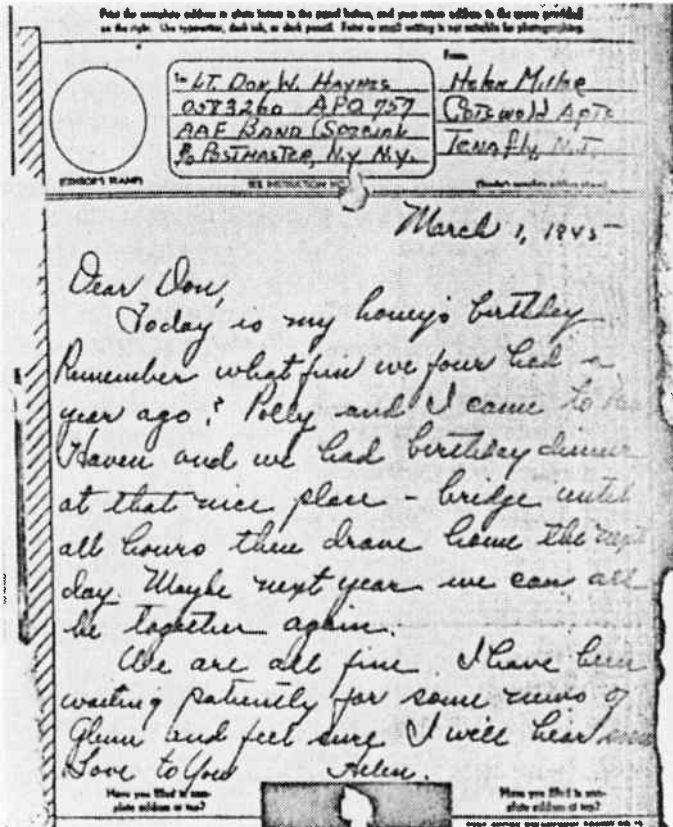 Print the complete address in plain letters in the panel below, and your return address in the space provided
on the right. Use typewriter, dark ink, or dark pencil. Faint or small writing is not suitable for photographing.
To
LT. DON W. HAYNES
0583260 APO 757
AAF BAND (SPECIAL
% POSTMASTER, N.Y. N.Y.
From
Helen Miller
Cotswold Apts
Tenafly N.J.
(CENSOR'S STAMP)
SEE INSTRUCTION NO.
(Sender's complete address above)
March 1, 1945
Dear Don,
Today is my honey's birthday
Remember what fun we four had a
year ago? Polly and I came to
Haven and we had birthday dinner
at that nice place - bridge until
all hours then drove home the next
day. Maybe next year we can all
be together again.
We are all fine. I have been
waiting patiently for some news of
Glenn and feel sure I will hear soon
Love to You Helen.
Have you filled in com-
plete address at top?
Have you filled in com-
plete address at top?